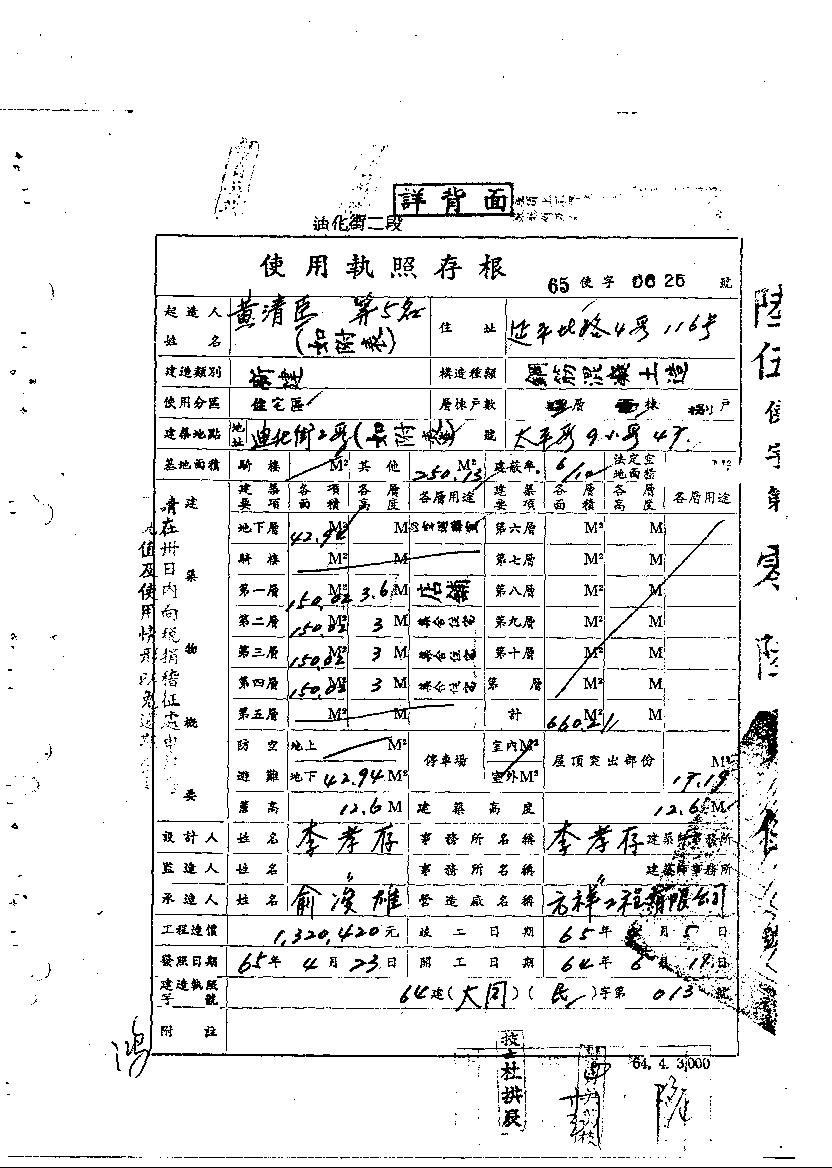 詳背面
迪化街二段
使用執照存根
65 使字 0625 號
起造人姓名 黃清臣 等5名 (如附表) 住址 延平北路4段116號
建造類別 新建 構造種類 鋼筋混凝土造
使用分區 住宅區 層棟戶數 層 棟 戶
建築地點 地址 迪化街2段(如附表) 號 太平段9小段47.
基地面積 騎樓 M² 其他 250.13 M² 建蔽率 6/10 法定空地面積 M²
建築要項 各項面積 各層高度 各層用途 建築要項 各層面積 各層高度 各層用途
地下層 42.94 M² M 第六層 M² M
騎樓 M² 第七層 M² M
第一層 150.02 M² 3.6 M 店舖 第八層 M² M
第二層 150.02 M² 3 M 集合住宅 第九層 M² M
第三層 150.02 M² 3 M 集合住宅 第十層 M² M
第四層 150.02 M² 3 M 集合住宅 第 層 M² M
第五層 M² M 計 660.21 M
建築物概要
防空避難 地上 M² 停車場 室內M² 屋頂突出部份 M²
地下 42.94 M² 室外M² 17.19
簷高 12.6 M 建築高度 12.6 M
設計人 姓名 李孝存 事務所名稱 李孝存 建築師事務所
監造人 姓名 〃 事務所名稱 〃 建築師事務所
承造人 姓名 俞俊雄 營造廠名稱 方祥工程有限公司
工程造價 1,320,420元 竣工日期 65年 月5日
發照日期 65年4月23日 開工日期 64年6月19日
建造執照字號 64建(大同)(民)字第 013 號
附註
64.4.3,000
請在卅日內向稅捐稽征處申
值及使用情形以免
陸伍使字第零陸
技士杜拱辰
鴻